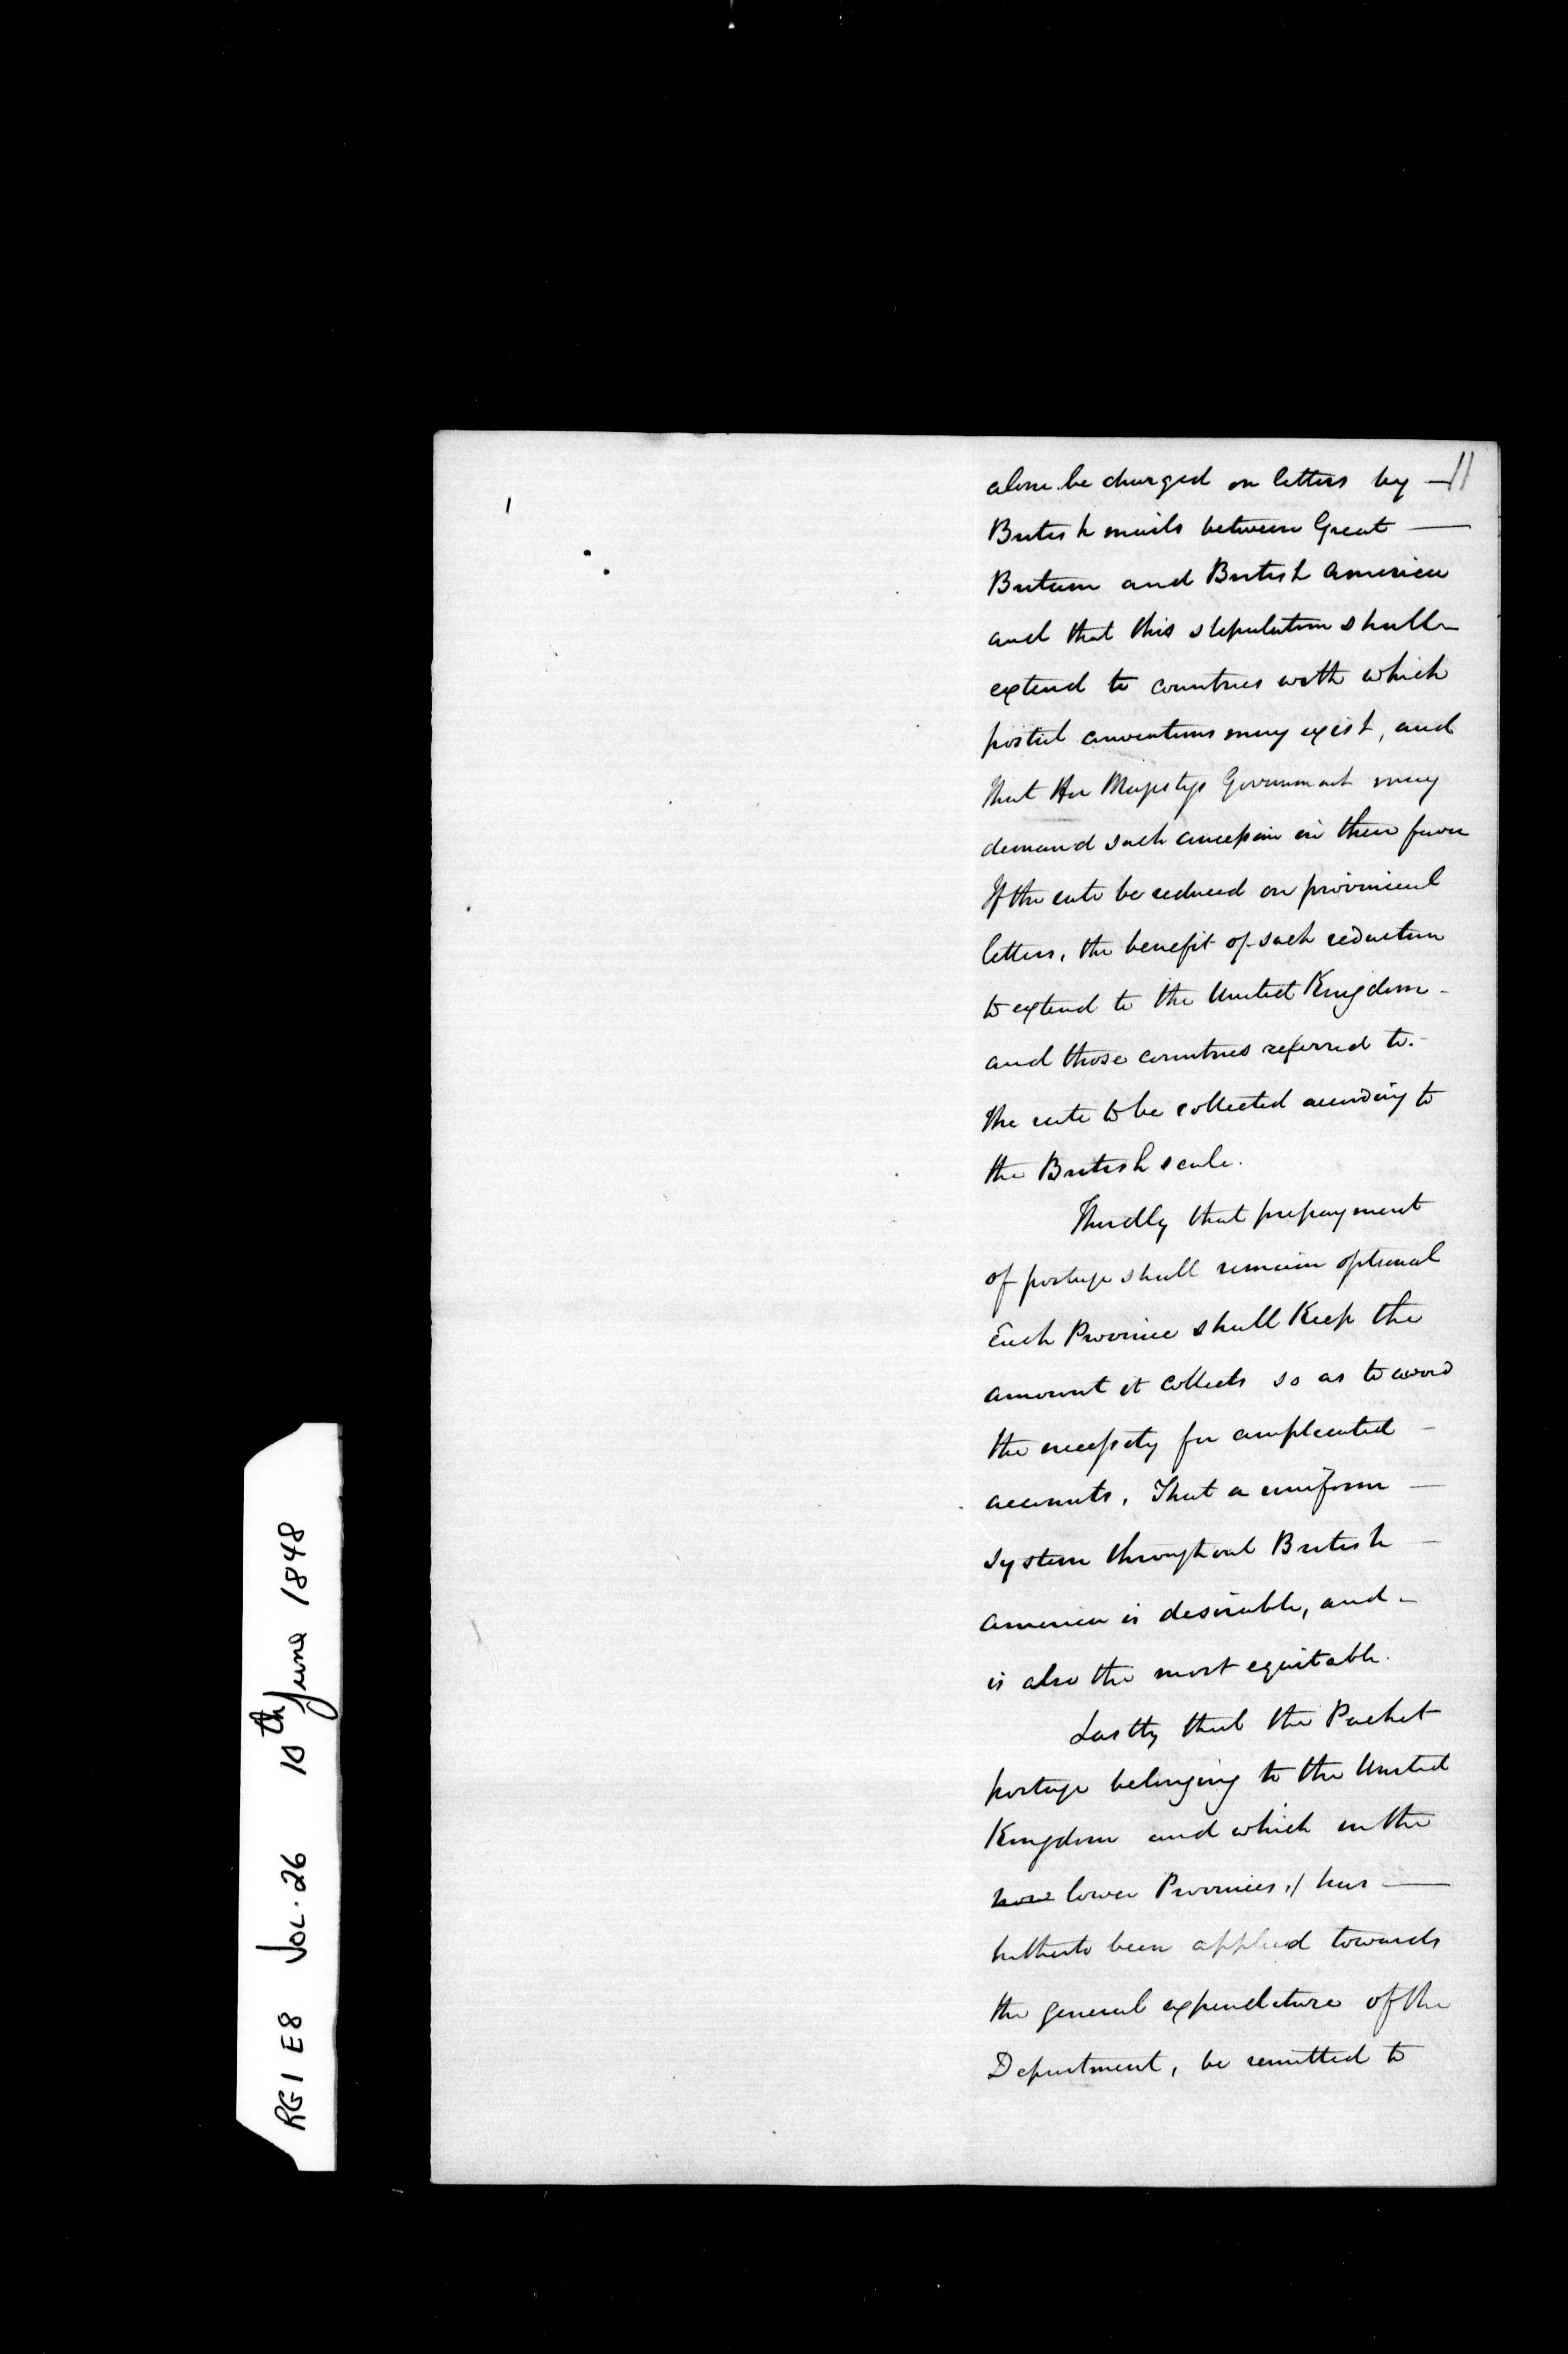 11
alone be charged on letters by —
British mails between Great —
Britain and British America
and that this stipulation shall
extend to countries with which
postal conventions may exist, and
that Her Majestys Government may
demand such concession in their favor
If the rate be reduced on provincial
letters, the benefit of such reduction
to extend to the United Kingdom -
and those countries referred to. -
The rate to be collected according to
the British scale.
Thirdly that prepayment
of postage shall remain optional
Each Province shall Keep the
amount it collects so as to avoid
the necessity for complicated —
accounts, That a uniform —
system throughout British —
America is desirable, and -
is also the most equitable.
Lastly that the Packet
postage belonging to the United
Kingdom and which in the
lower Provinces, has —
hitherto been applied towards
the general expenditure of the
Department, be remitted to
RG1 E8 VOL. 26 10th June 1848